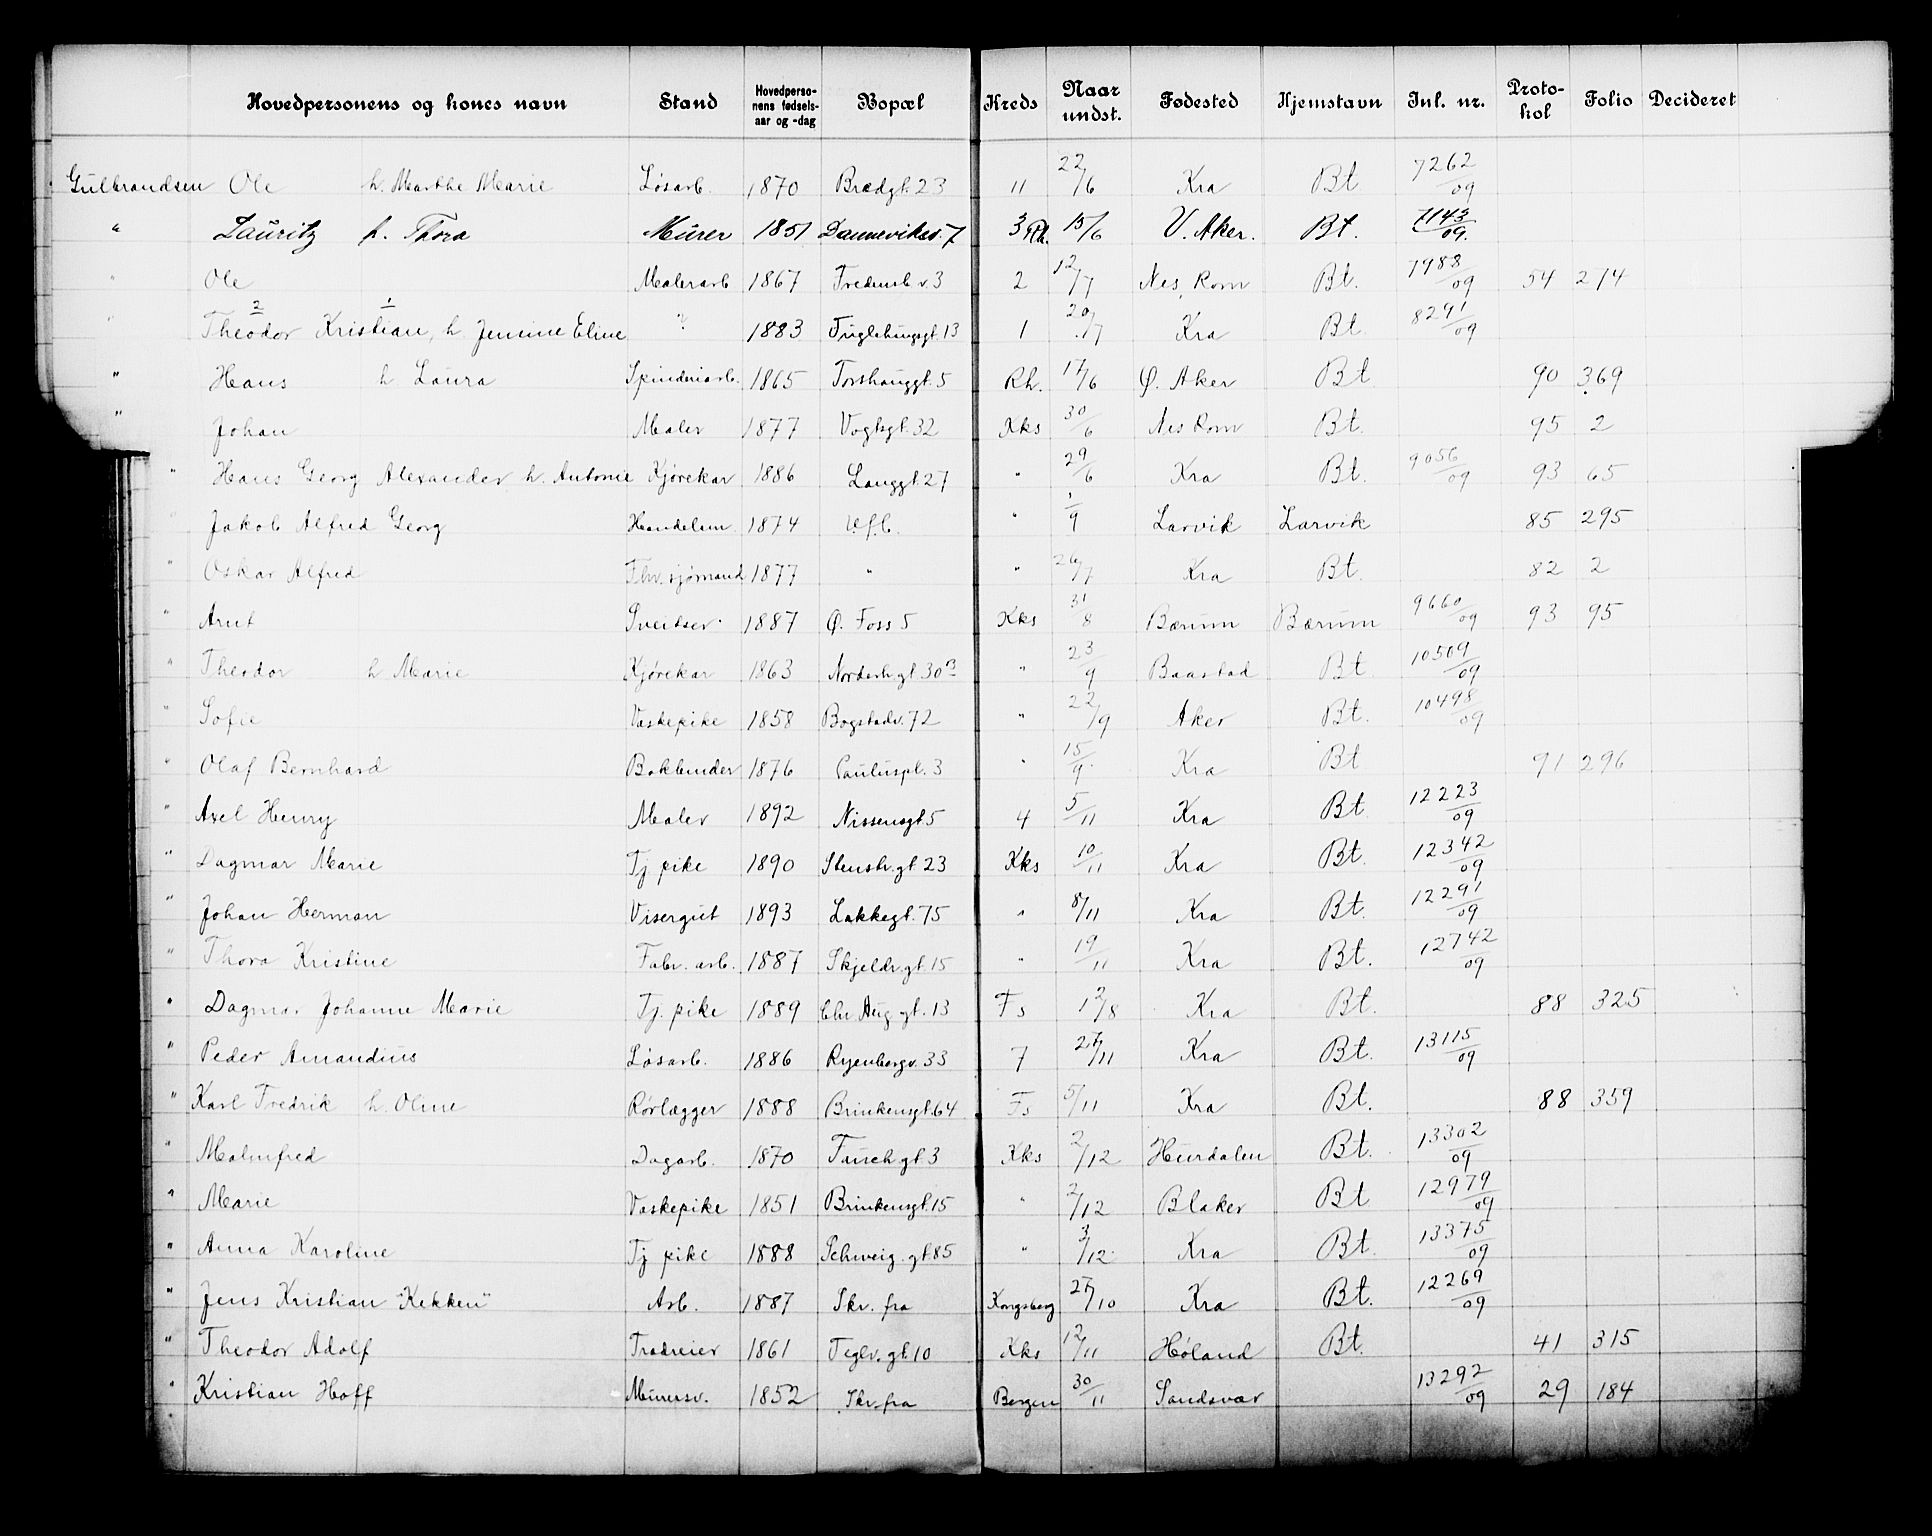 Hovedpersonens og kones navn Stand Hovedpersonens fødselsaar og -dag Bopæl Kreds Naar undst. Fødested Hjemstavn Inl. nr. Protokol Folio Decideret
Gulbrandsen Ole h. Marthe Marie Løsarb. 1870 Bredgt. 23 11 22/6 Kra Bt 7262/09
" Lauritz h. Thora Murer 1851 Danneviksv. 7 3 Rh. 15/6 V. Aker. Bt. 7143/09.
" Ole Malerarb 1867 Fredensb v. 3 2 12/7 Nes, Rom Bt. 7988/09 54 274
" Theodor 2 Kristian, 1 h. Jensine Eline " 1883 Fuglehaugsgt. 13 1 20/7 Kra Bt. 8291/09
" Hans h. Laura Spinderiarb. 1865 Torshauggt. 5 Rh. 17/6 Ø. Aker Bt. 90 369
" Johan Maler 1877 Vogtsgt. 32 Kks 30/6 Nes Rom Bt. 95 2
" Hans Georg Alexander h. Antonie Kjørekar 1886 Langgt. 27 " 29/6 Kra Bt. 9056/09 93 65
Jakob Alfred Georg Handelsm. 1874 U.f.b. " 1/9 Larvik Larvik 85 295
" Oskar Alfred Fhv. sjømand 1877 " " 26/7 Kra Bt. 82 2
" Arnt Sveitser 1887 Ø. Foss 5 Kks 31/8 Bærum Bærum 9660/09 93 95
" Theodor h. Marie Kjørekar 1863 Norderh.gt. 30 B " 23/9 Baastad Bt. 10509/09
" Sofie Vaskepike 1858 Bogstadv. 72 " 22/9 Aker Bt. 10498/09
" Olaf Bernhard Bokbinder 1876 Pauluspl. 3 " 15/9 Kra Bt 91 296
" Axel Henry Maler 1892 Nissensgt 5 4 5/11 Kra Bt 12223/09
" Dagmar Marie Tj pike 1890 Stenstr.gt. 23 Kks 10/11 Kra Bt. 12342/09
" Johan Herman Visergut 1893 Lakkegt. 75 " 8/11 Kra Bt. 12291/09
" Thora Kristine Fabr. arb. 1887 Skjeldr.gt. 15 " 19/11 Kra Bt. 12742/09
" Dagmar Johanne Marie Tj. pike 1889 Chr Aug gt. 13 Fs 12/8 Kra Bt. 88 325
" Peder Amandius Løsarb. 1886 Ryenbergv. 33 7 27/11 Kra Bt. 13115/09
" Karl Fredrik h. Oline Rørlægger 1888 Brinkensgt. 64 Fs 5/11 Kra Bt. 88 359
" Malmfred Dagarb. 1870 Tauch gt. 3 Kks 2/12 Hurdalen Bt. 13302/09
" Marie Vaskepike 1851 Brinkensgt. 15 " 2/12 Blaker Bt 12979/09
" Anna Karoline Tj pike 1888 Schweig. gt. 85 " 3/12 Kra Bt. 13375/09
" Jens Kristian "Kekken" Arb. 1887 Skr. fra Kongsberg 27/10 Kra Bt. 12269/09
" Theodor Adolf Tradreier 1861 Teglv. gt. 10 Kks 12/11 Høland Bt. 41 315
" Kristian Hoff Murersv. 1852 Skr. fra Bergen 30/11 Sandsvær 13292/09 29 184